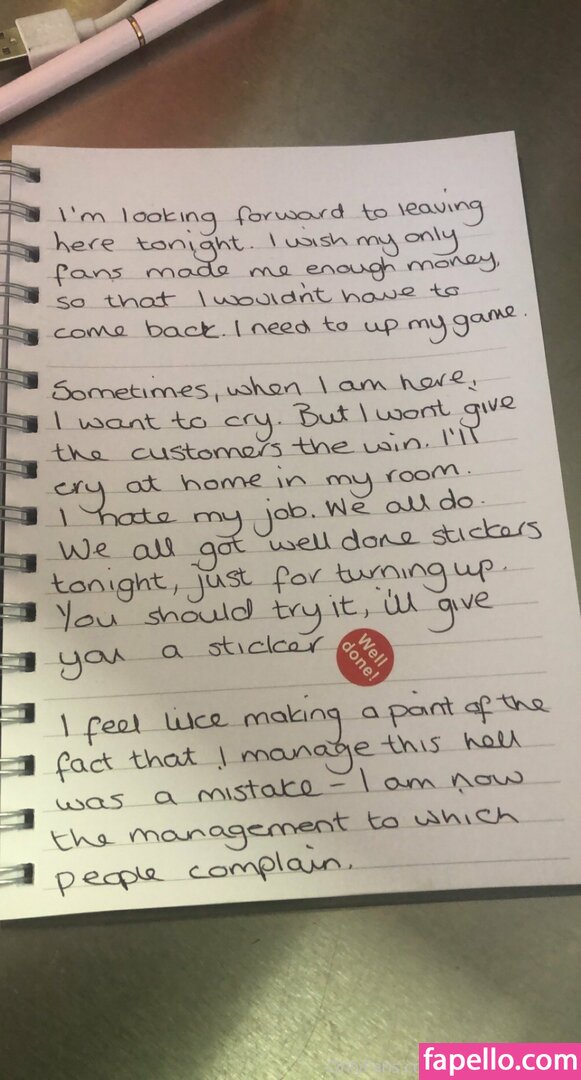 I'm looking forward to leaving
here tonight. I wish my only
fans made me enough money,
so that I wouldn't have to
come back. I need to up my game.
Sometimes, when I am here,
I want to cry. But I wont give
the customers the win. I'll
cry at home in my room.
I hate my job. We all do.
We all got well done stickers
tonight, just for turning up.
You should try it, i'll give
you a sticker
Well
done!
I feel like making a point of the
fact that I manage this hell
was a mistake - I am now
the management to which
people complain.
fapello.com